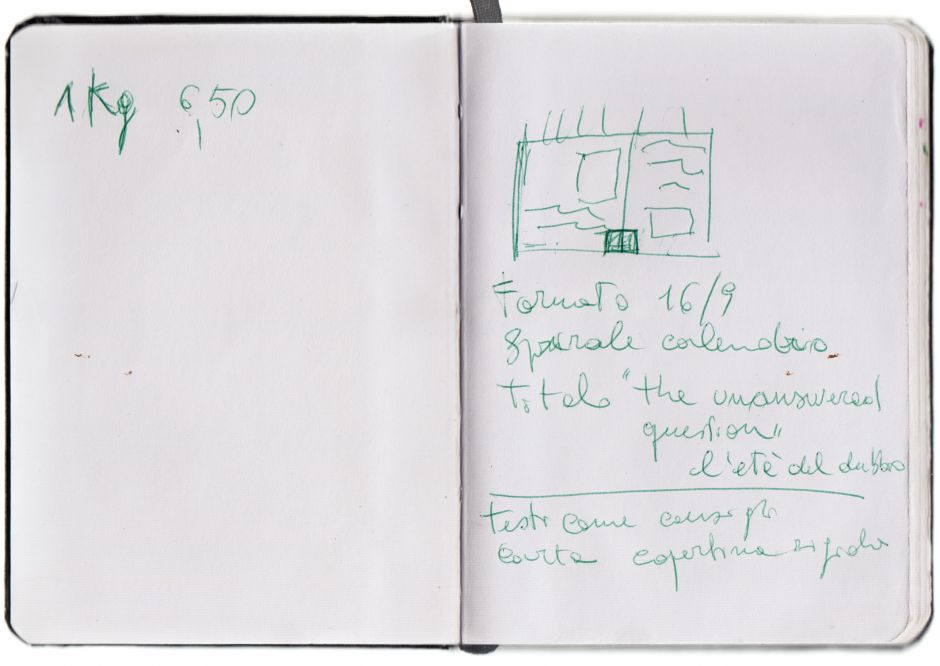 1 Kg 6,50
Formato 16/9
Spirale calendario
Titolo "the unanswered
question"
l'età del dubbio
testi come consigli
carta copertina rigida